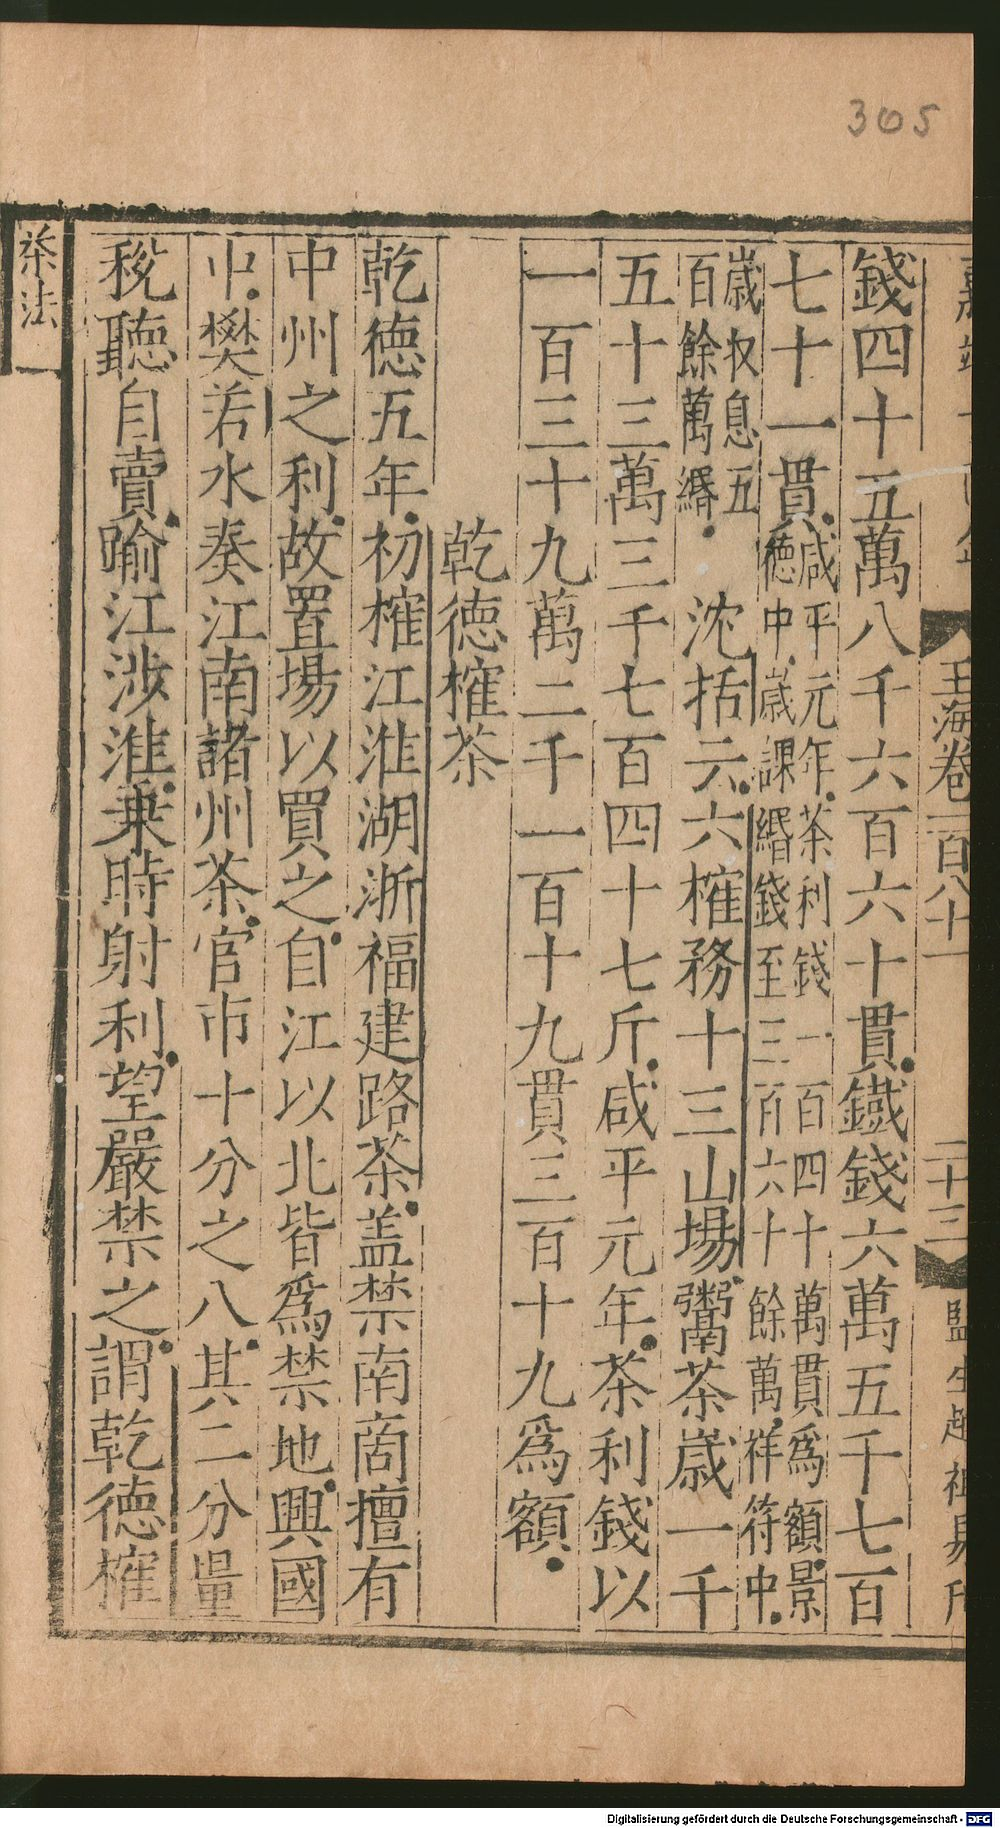 305
玉海卷一百八十一
二十三
錢四十五萬八千六百六十貫鐵錢六萬五千七百
七十一貫咸平元年茶利錢一百四十萬貫爲額景
德中歲課緡錢至三百六十餘萬祥符中
歲收息五
百餘萬緡
沈括云六榷務十三山場鬻茶歲一千
五十三萬三千七百四十七斤咸平元年茶利錢以
一百三十九萬二千一百十九貫三百十九爲額
乾德榷茶
乾德五年初榷江淮湖浙福建路茶盖禁南商擅有
中州之利故置場以買之自江以北皆爲禁地興國
中樊若水奏江南諸州茶官市十分之八其二分量
稅聽自賣踰江涉淮乗時射利望嚴禁之謂乾德榷
茶法
Digitalisierung gefördert durch die Deutsche Forschungsgemeinschaft - DFG